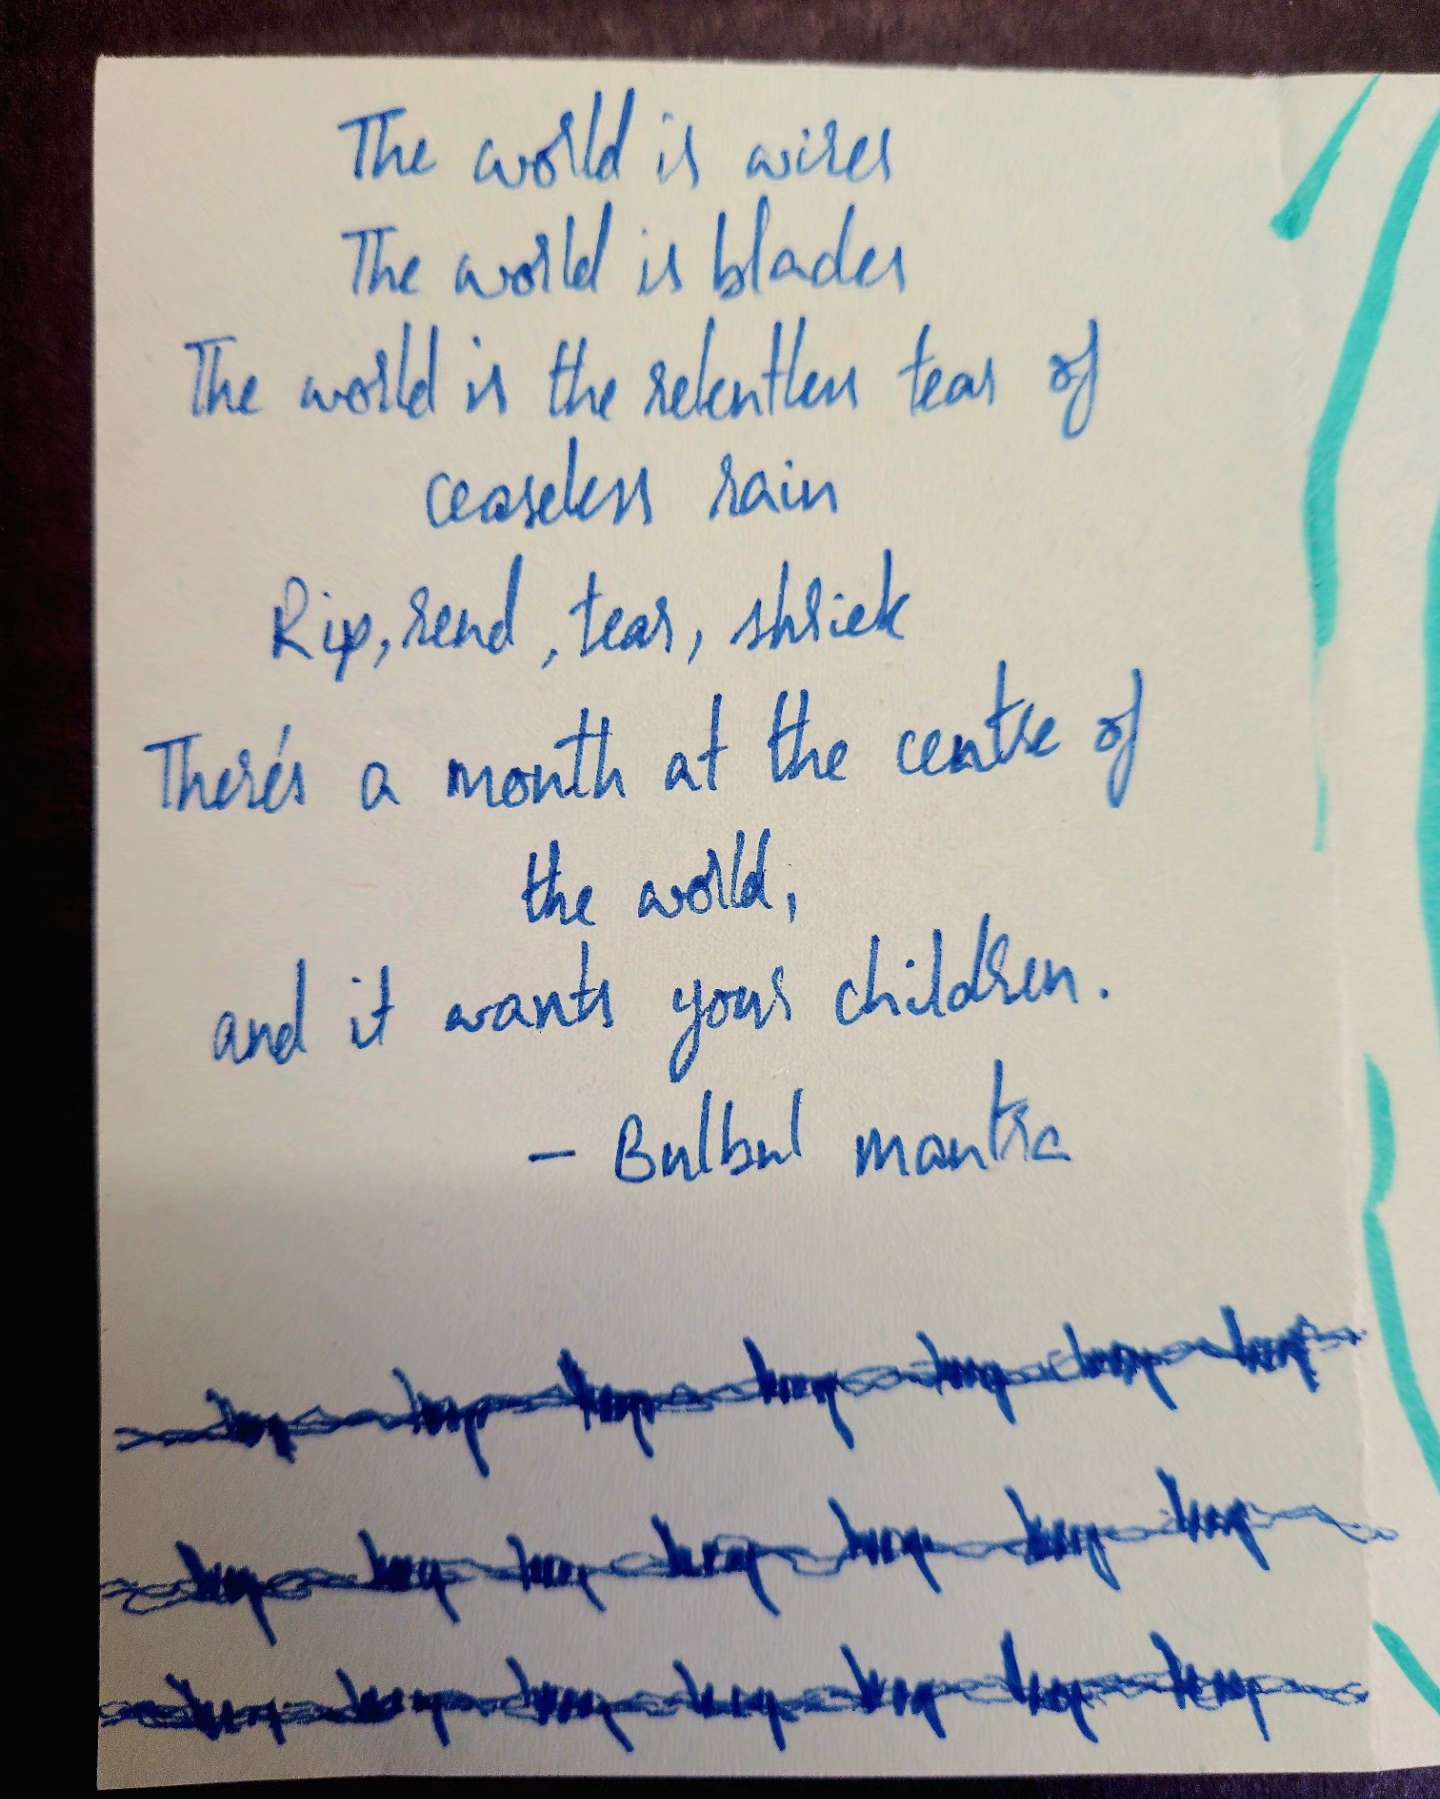 The world is wires
The world is blades
The world is the relentless tear of
ceaseless rain
Rip, rend, tear, shriek
There's a month at the centre of
the world,
and it wants your children.
- Bulbul mantra